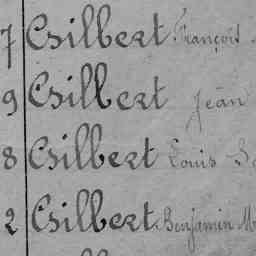 7 Gilbert François
9 Gilbert Jean
8 Gilbert Louis
2 Gilbert Benjamin